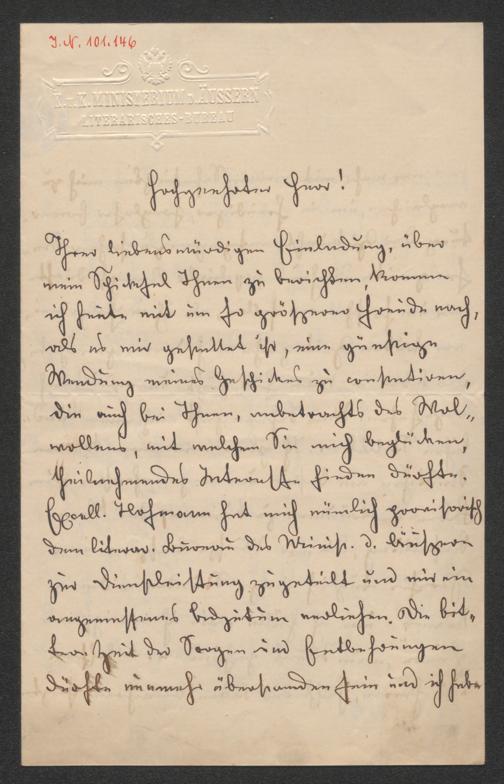 I. N. 101.146
K. u. K. MINISTERIUM D. ÄUSSERN
LITERARISCHES-BUREAU
Hochgeehrter Herr!
Ihrer liebenswürdigen Einladung, über
mein Schicksal Ihnen zu berichten, komme
ich heute mit um so größerer Freude nach,
als es mir gestattet ist, eine günstige
Wendung meines Geschickes zu constatiren,
die auch bei Ihnen, anbetrachts des Wol-
wollens, mit welchem Sie mich beglücken,
theilnehmendes Interesse finden dürfte.
Excell. Hofmann hat mich nämlich provisorisch
dem literar. Bureau des Minist. d. Äußern
zur Dienstleistung zugeteilt und mir ein
angemessenes Adjutum verliehen. Die bit-
tere Zeit der Sorgen und Entbehrungen
dürfte nunmehr überstanden sein und ich habe